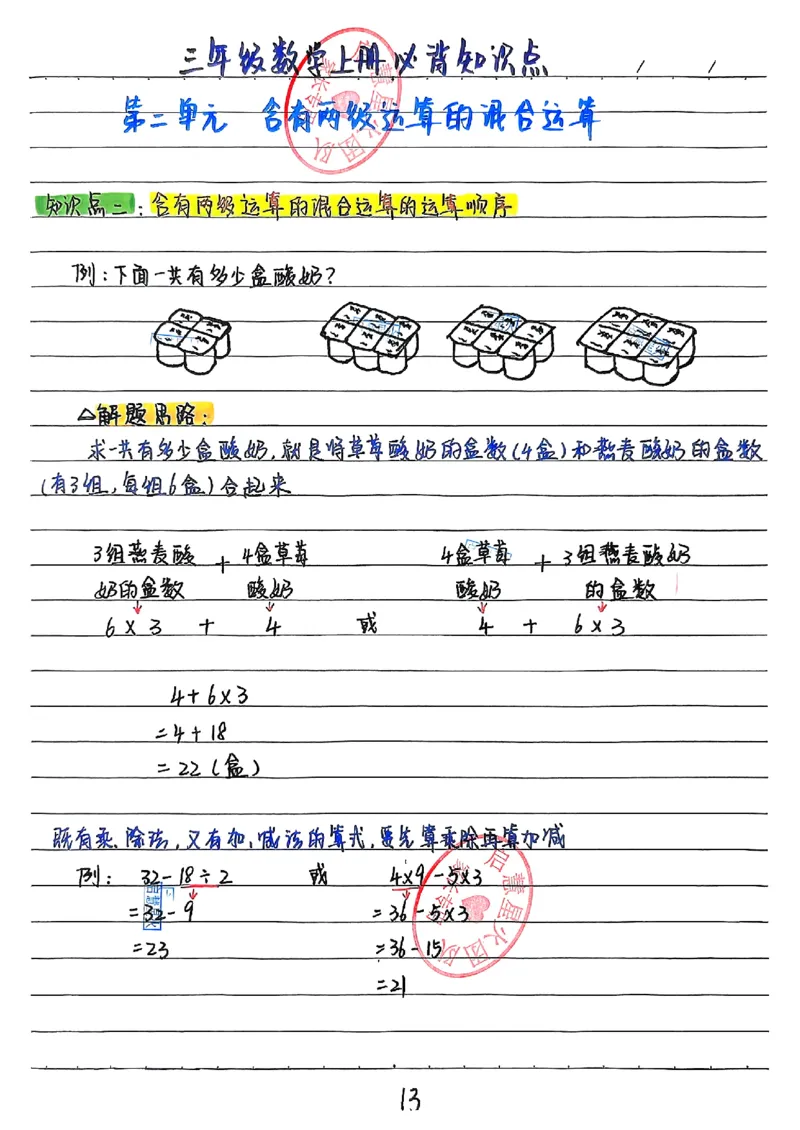 三年级数学上册必背知识点
第二单元 含有两级运算的混合运算
知识点二：含有两级运算的混合运算的运算顺序
例：下面一共有多少盒酸奶？
△解题思路：
求一共有多少盒酸奶，就是将草莓酸奶的盒数（4盒）和燕麦酸奶的盒数
（有3组，每组6盒）合起来
3组燕麦酸奶的盒数 + 4盒草莓酸奶 4盒草莓酸奶 + 3组燕麦酸奶的盒数
6×3 + 4 或 4 + 6×3
4+6×3
=4+18
=22（盒）
既有乘、除法，又有加、减法的算式，要先算乘除再算加减
例：32-18÷2 或 4×9-5×3
=32-9 =36-5×3
=23 =36-15
=21
13